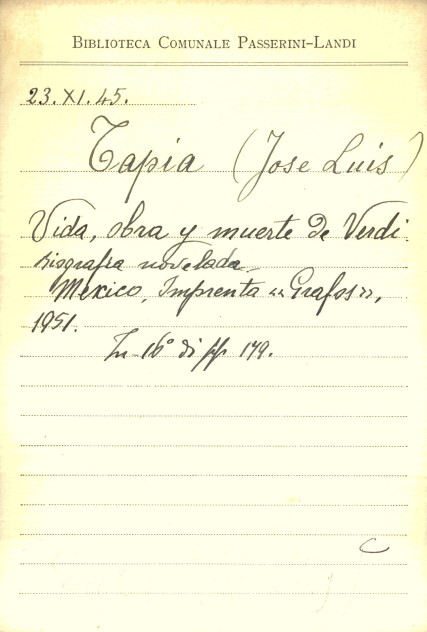 BIBLIOTECA COMUNALE PASSERINI-LANDI
23. XI. 45.
Tapia (Jose Luis)
Vida, obra y muerte de Verdi.
Biografia novelada.
Mexico, Imprenta «Grafos»,
1951.
In 16° di pp 179.
C